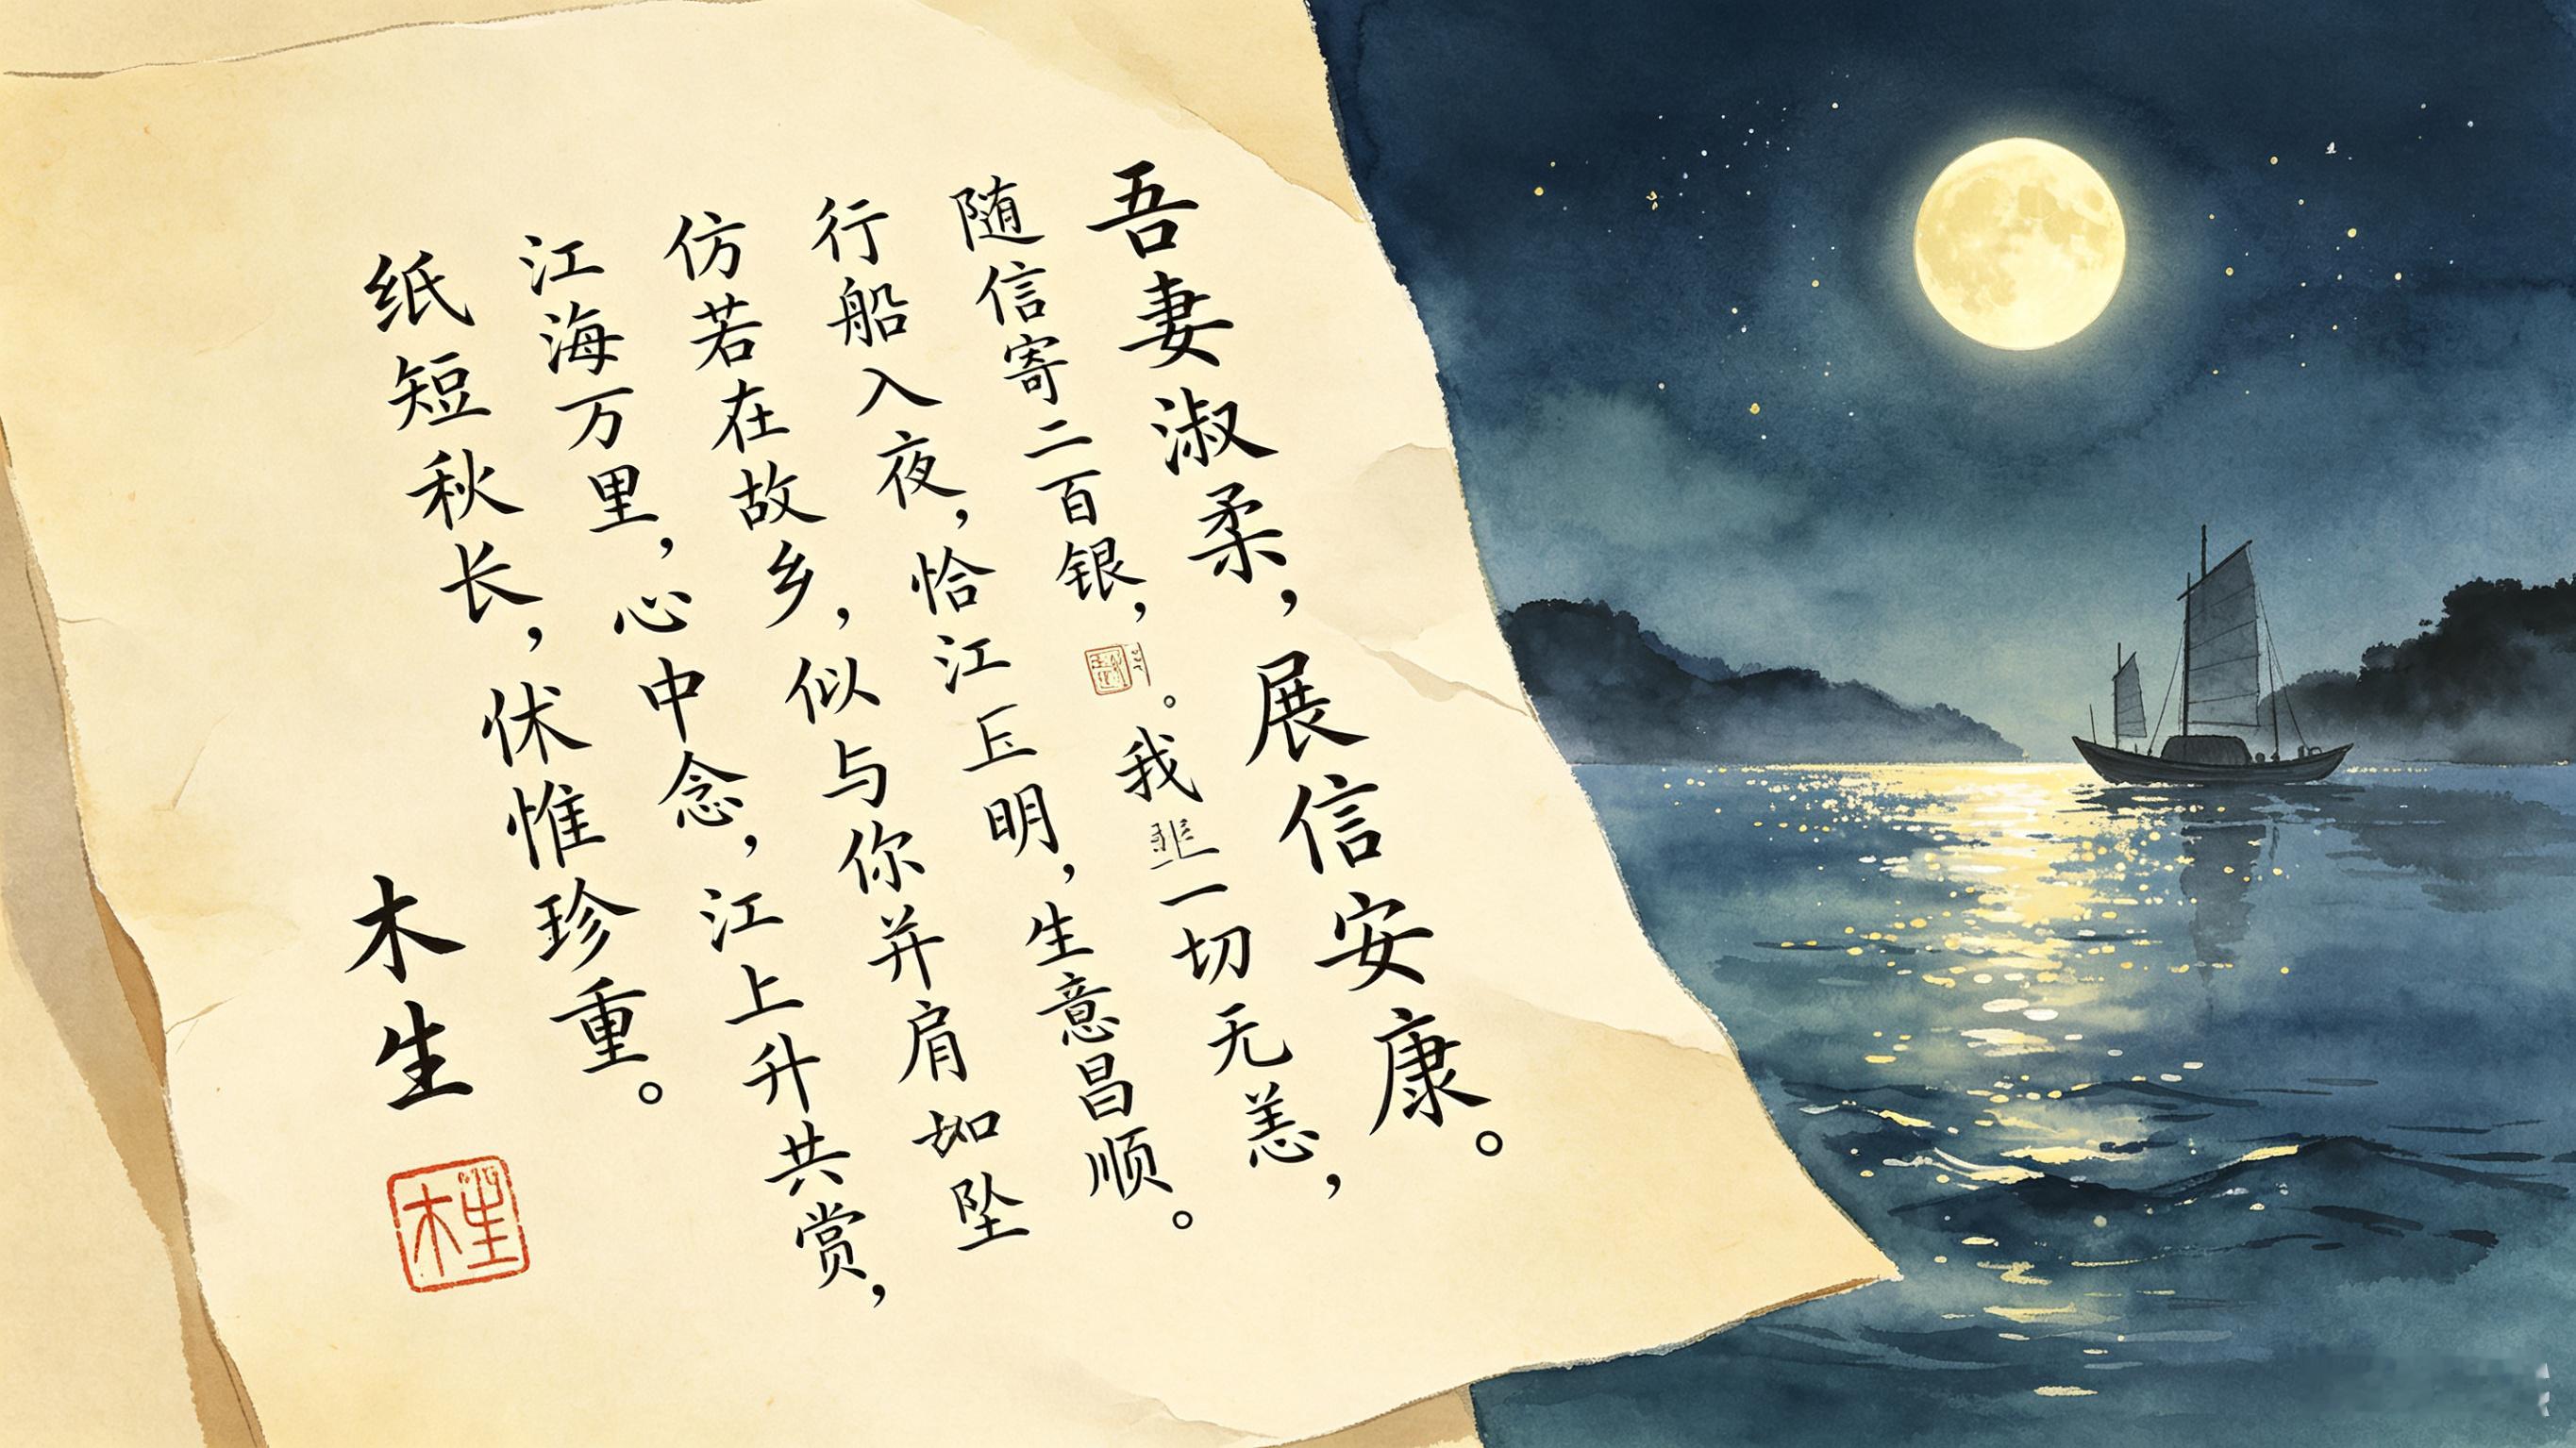 吾妻淑柔，展信安康。
随信寄二百银，。我一切无恙，
行船入夜，恰江明，生意昌顺。
仿若在故乡，似与你并肩如坠
江海万里，心中念，江上升共赏，
纸短秋长，惟珍重。
木生